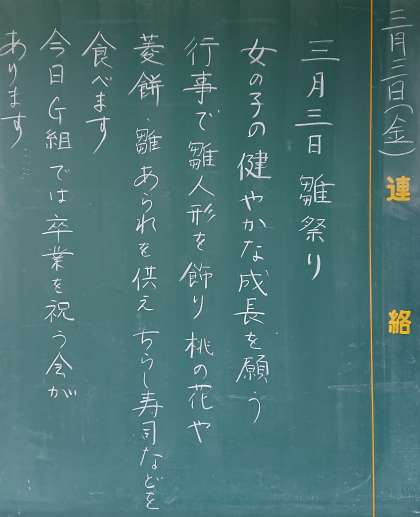 三月二日(金)
連絡
三月三日 雛祭り
女の子の健やかな成長を願う
行事で雛人形を飾り桃の花や
菱餅、雛あられを供えちらし寿司などを
食べます
今日G組では卒業を祝う会が
あります……